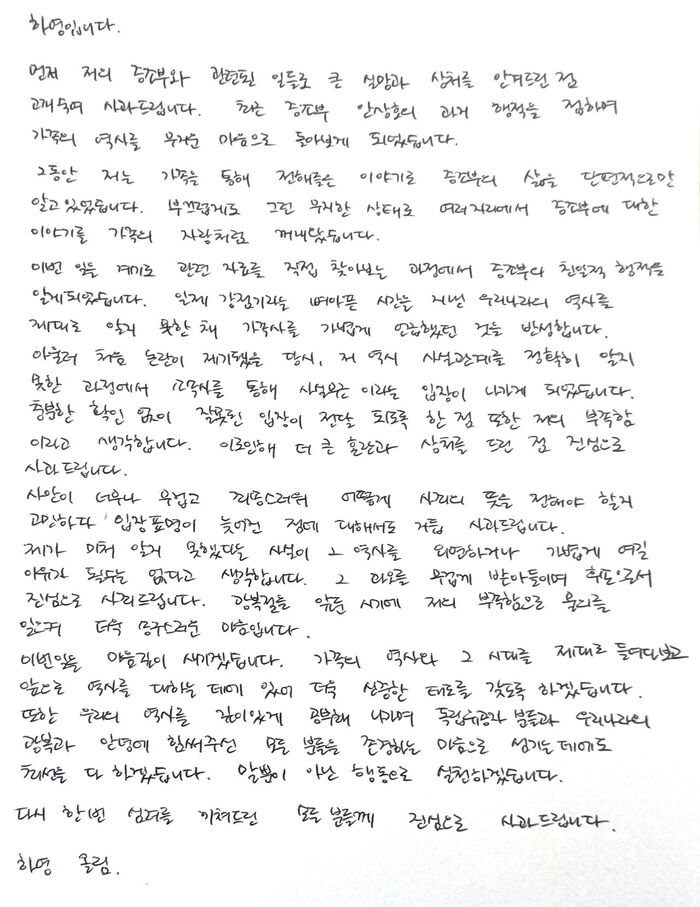 하영입니다.
먼저 저의 증조부와 관련된 일들로 큰 실망과 상처를 안겨드린 점
고개 숙여 사과드립니다. 최근 증조부 안상호의 과거 행적을 접하며
가족의 역사를 무거운 마음으로 돌아보게 되었습니다.
그동안 저는 가족을 통해 전해들은 이야기로 증조부의 삶을 단편적으로만
알고 있었습니다. 부끄럽게도 그런 무지한 상태로 여러 자리에서 증조부에 대한
이야기를 가족의 자랑처럼 꺼내놨습니다.
이번 일을 계기로 관련 자료를 직접 찾아보는 과정에서 증조부의 친일적 행적을
알게되었습니다. 일제 강점기라는 뼈아픈 시간을 지낸 우리나라의 역사를
제대로 알지 못한 채 가족사를 가볍게 언급했던 것을 반성합니다.
아울러 처음 논란이 제기됐을 당시, 저 역시 사실관계를 정확히 알지
못한 과정에서 소속사를 통해 사실무근 이라는 입장이 나가게 되었습니다.
충분한 확인 없이 잘못된 입장이 전달 되도록 한 점 또한 저의 부족함
이라고 생각합니다. 이로인해 더 큰 혼란과 상처를 드린 점 진심으로
사과드립니다.
사안이 너무나 무겁고 죄송스러워 어떻게 사죄의 뜻을 전해야 할지
고민하다 입장표명이 늦어진 점에 대해서도 거듭 사과드립니다.
제가 미처 알지 못했다는 사실이 그 역사를 외면하거나 가볍게 여길
이유가 될수는 없다고 생각합니다. 그 과오를 무겁게 받아들이며 후손으로서
진심으로 사죄드립니다. 광복절을 앞둔 시기에 저의 부족함으로 물의를
일으켜 더욱 송구스러운 마음입니다.
이번일을 마음깊이 새기겠습니다. 가족의 역사와 그 시대를 제대로 들여다보고
앞으로 역사를 대하는 데에 있어 더욱 신중한 태도를 갖도록 하겠습니다.
또한 우리의 역사를 깊이있게 공부해 나가며 독립유공자 분들과 우리나라의
광복과 안녕에 힘써주신 모든 분들을 존경하는 마음으로 섬기는 데에도
최선을 다 하겠습니다. 말뿐이 아닌 행동으로 실천하겠습니다.
다시 한번 심려를 끼쳐드린 모든 분들께 진심으로 사과드립니다.
하영 올림.